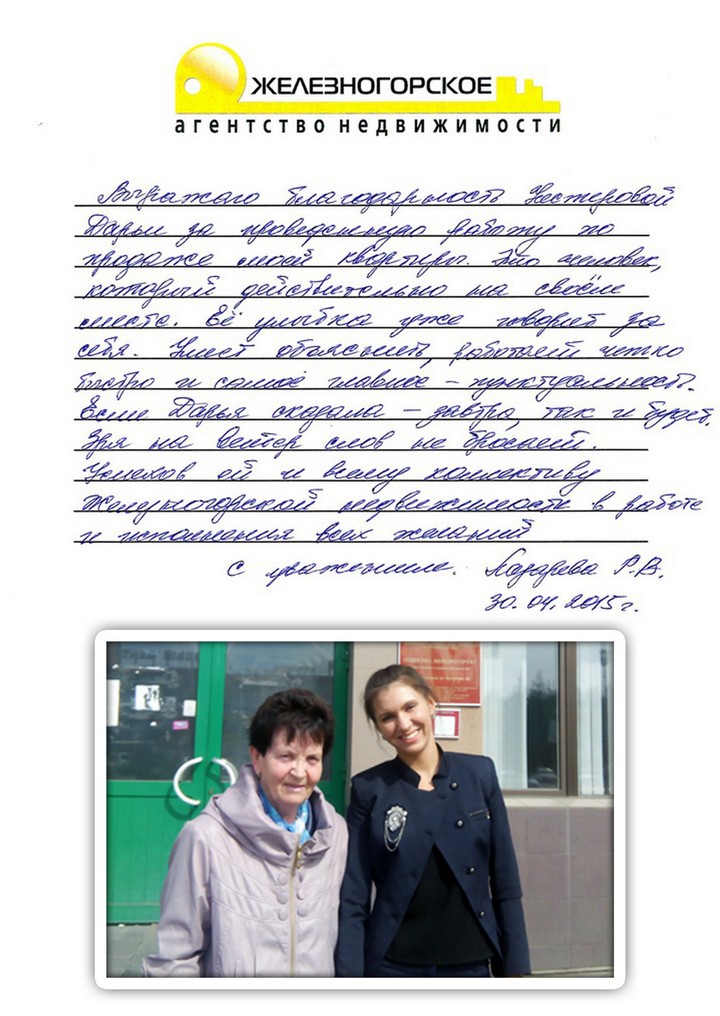 ЖЕЛЕЗНОГОРСКОЕ
агентство недвижимости
Выражаю благодарность Нестеровой
Дарьи за проведенную работу по
продаже моей квартиры. Это человек,
который действительно на своём
месте. Её улыбка уже говорит за
себя. Умеет объяснить, работает четко
быстро и самое главное – пунктуальность.
Если Дарья сказала – завтра, так и будет.
Зря на ветер слов не бросает.
Успехов ей и всему коллективу
Железногорской недвижимости в работе
и исполнения всех желаний
С уважением. Лазарева Р.В.
30.04.2015 г.